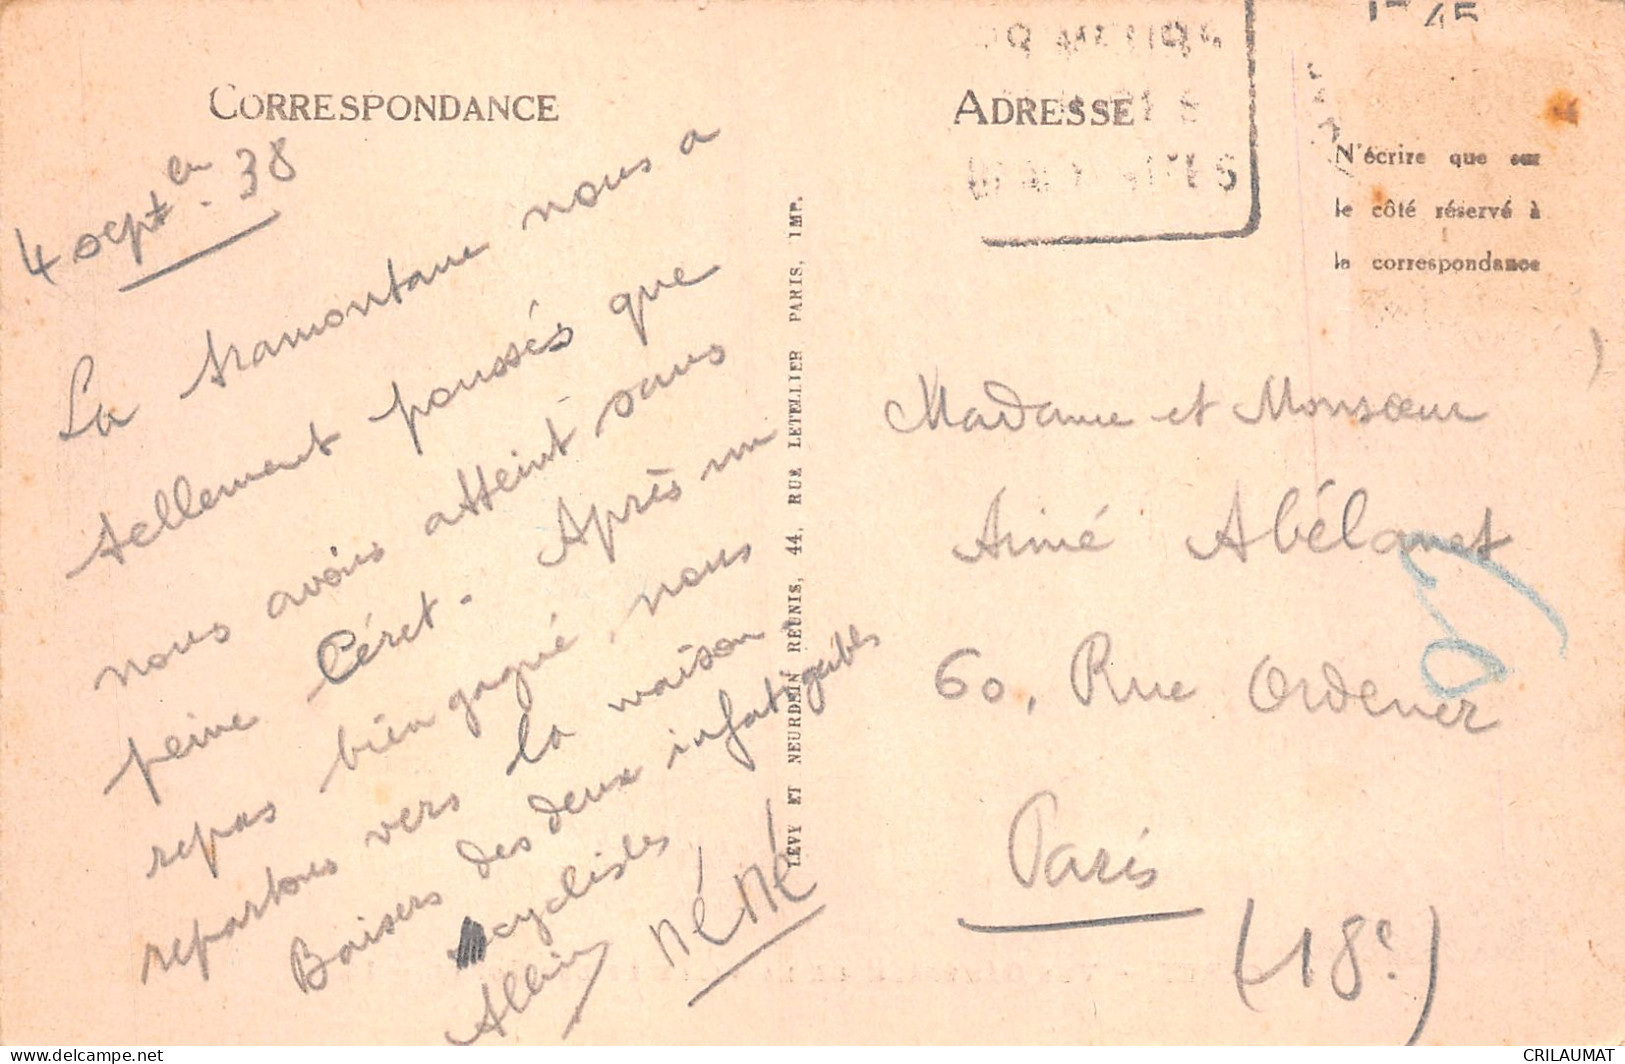 CORRESPONDANCE
4 septbre. 38
La tramontane nous a
tellement poussés que
nous avons atteint sans
peine Céret. Après un
repas bien gagné, nous
repartons vers la maison.
Baisers des deux infatigables
cyclistes
Albin NéNé
LÉVY ET NEURDEIN RÉUNIS, 44, RUE LETELLIER PARIS, IMP.
ADRESSE
N'écrire que sur
le côté réservé à
la correspondance
Madame et Monsieur
Aimé Abélanet
60, Rue Ordener
Paris
(18e)
CRILAUMAT